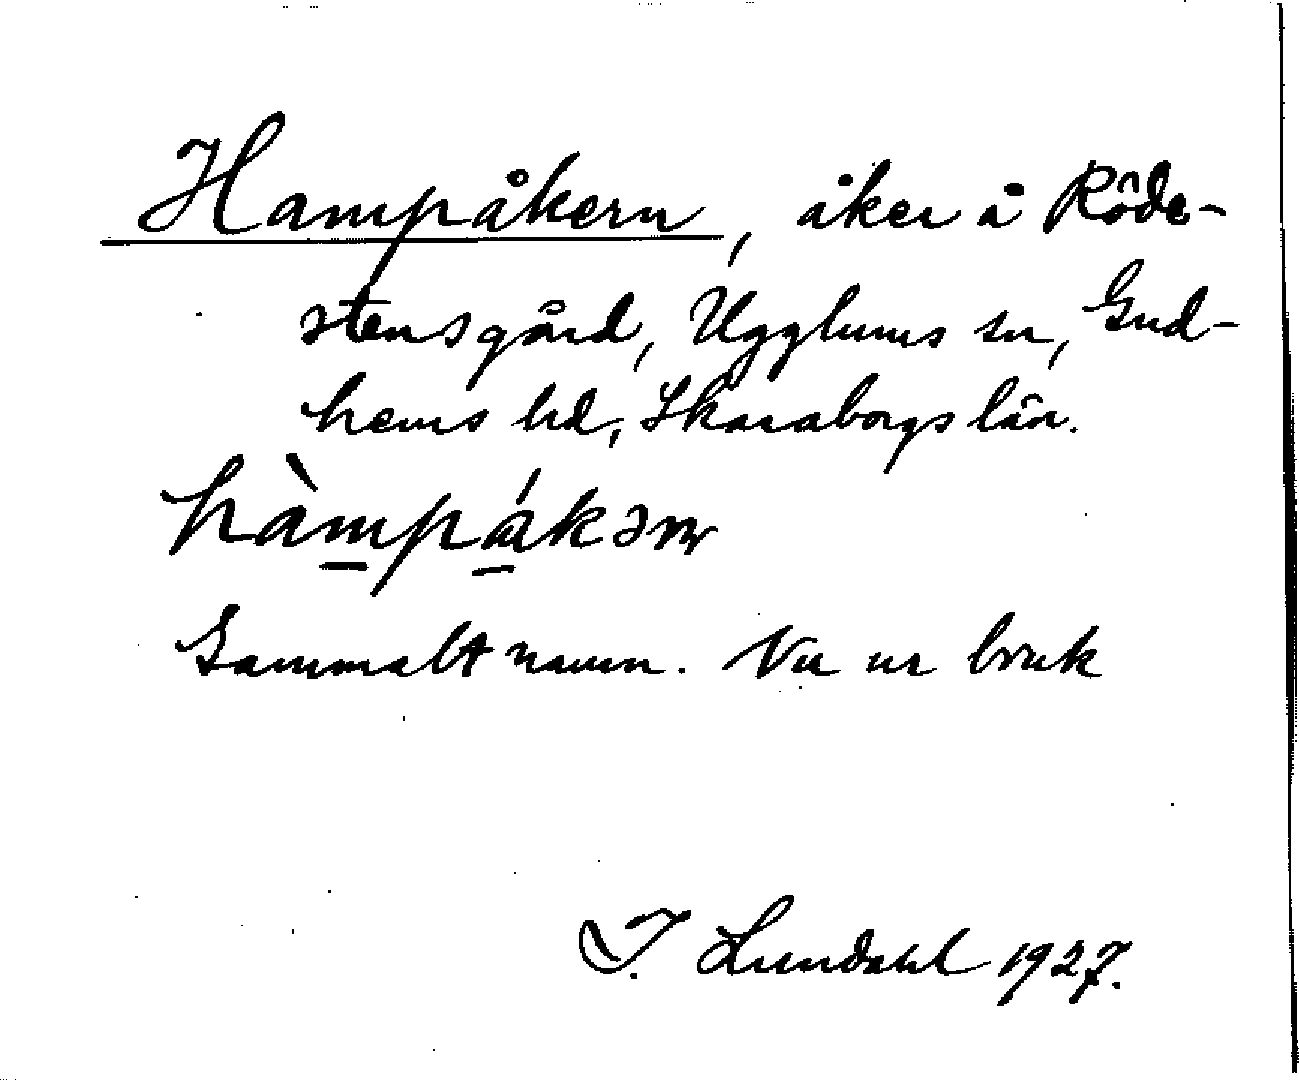 Hampåkern, åker å Röde-
stensgård, Ugglums sn, Gud-
hems hd, Skaraborgs län.
hàmpákəɳ
Gammalt namn. Nu ur bruk
I. Lundahl 1927.